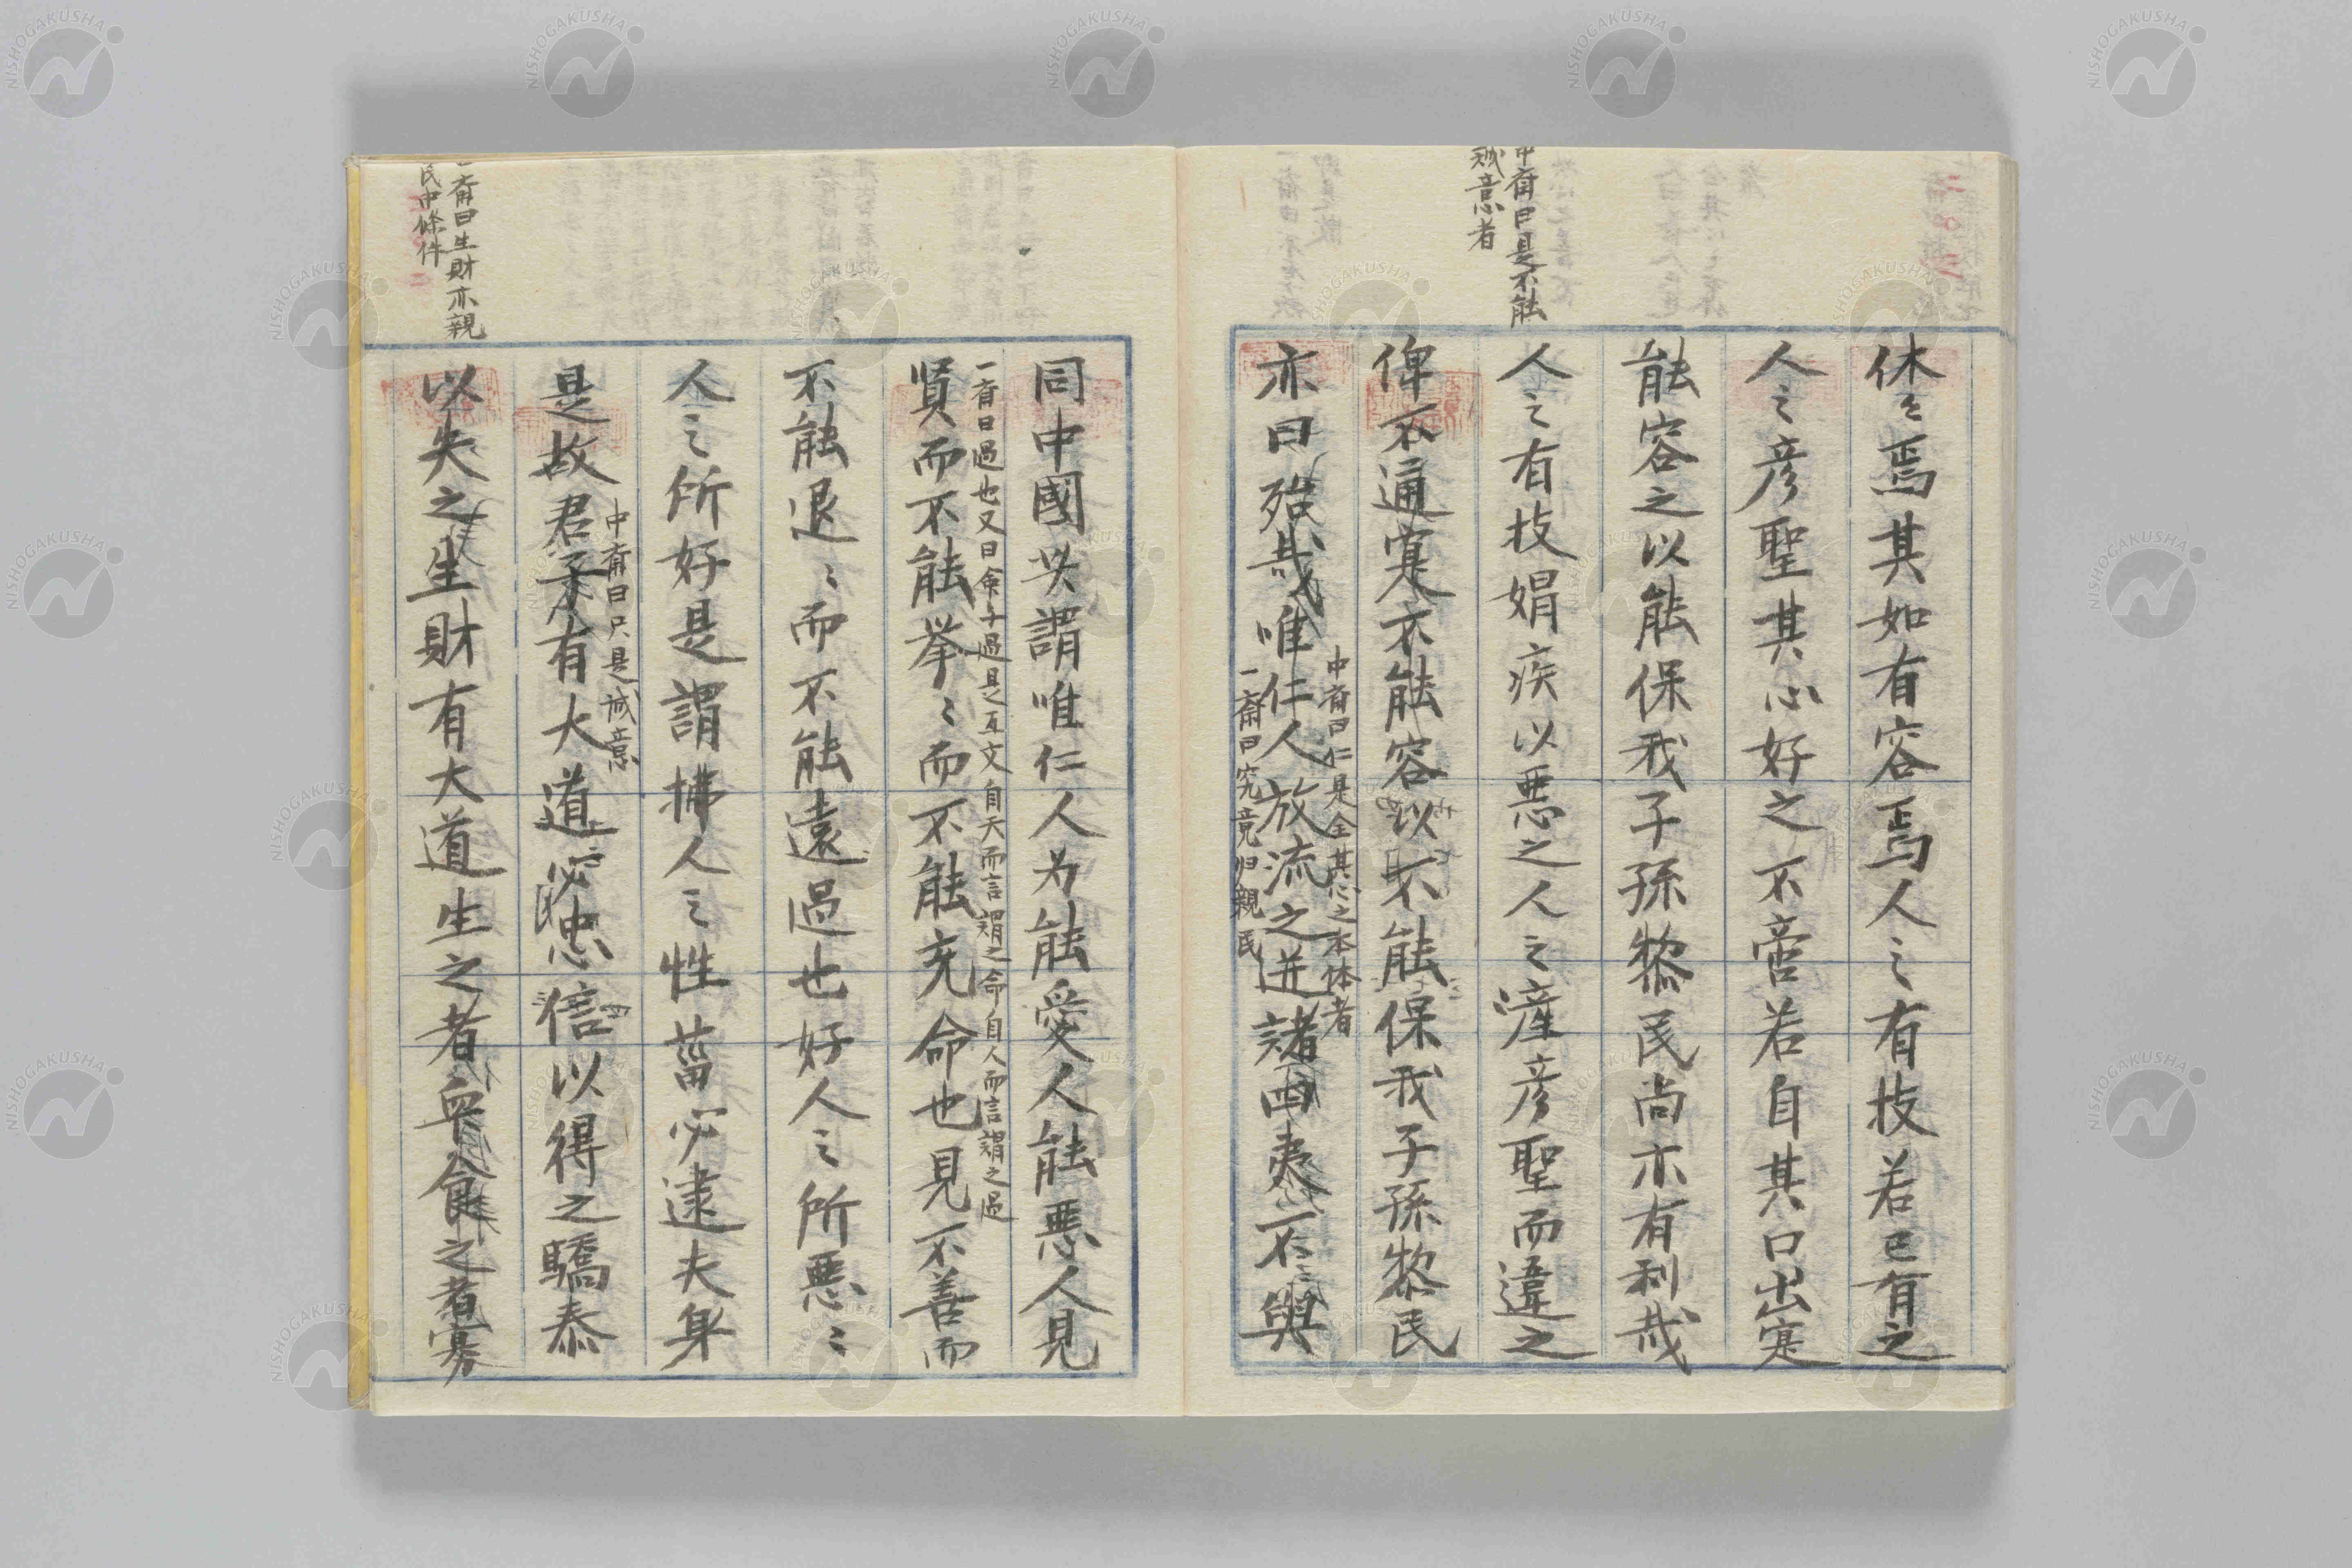 中斎曰是不能
誠意者
休々焉其如有容焉人之有技若己有之
人之彦聖其心好之不啻若自其口出寔
能容之以能保我子孫黎民尚亦有利哉
人之有技娼疾以悪之人之彦聖而違之
俾不通寔不能容以不能保我子孫黎民
中斎曰仁是全其心之本体者
亦曰殆哉唯仁人放流之迸諸四夷不與
一斎曰究竟归親民
同中國此謂唯仁人为能愛人能悪人見
一斎曰過也又曰命与過是互文自天而言謂之命自人而言謂之過
賢而不能挙〻而不能先命也見不善而
不能退〻而不能遠過也好人之所悪〻
人之所好是謂拂人之性菑必逮夫身
中斎曰只是誠意
是故君子有大道必忠信以得之驕泰
一斎曰生財亦親
民中條件
以失之生財有大道生之者衆食之者寡
NISHOGAKUSHA